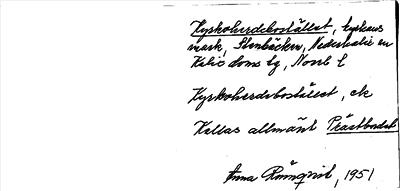 Kyrkoherdebostället, kyrkans
mark, Stenbäcken, Nederkalix sn
Kalix doms lg, Norrb l
Kyrkoherdebostället, ek
Kallas allmänt Prästbordet
Anna Rönnqvist, 1951